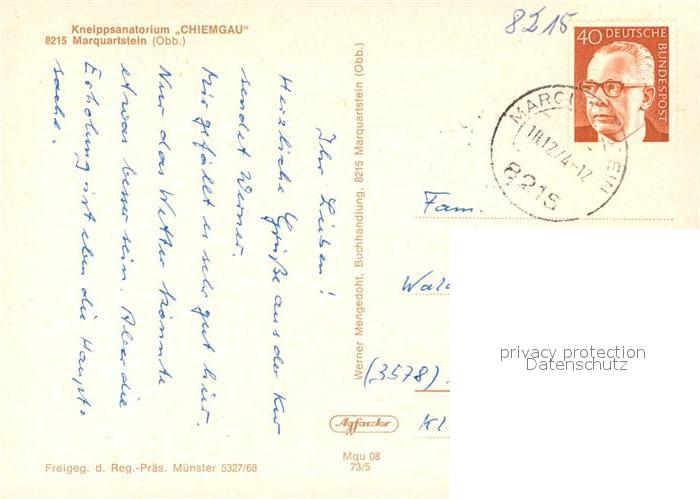 Kneippsanatorium „CHIEMGAU"
8215 Marquartstein (Obb.)
Ihr Lieben!
Herzliche Grüße aus der Kur
sendet Werner.
Mir gefällt es sehr gut hier.
Nur das Wetter könnte
etwas besser sein. Aber die
Erholung ist eben die Haupt-
sache.
Freigeg. d. Reg.-Präs. Münster 5327/68
Werner Mengedoht, Buchhandlung, 8215 Marquartstein (Obb.)
Agfacolor
Mqu 08
73/5
8215
40 DEUTSCHE
BUNDESPOST
MARQU
EIN
18.12.74-12
8215
Fam.
Wal
(3578)
Kl
privacy protection
Datenschutz